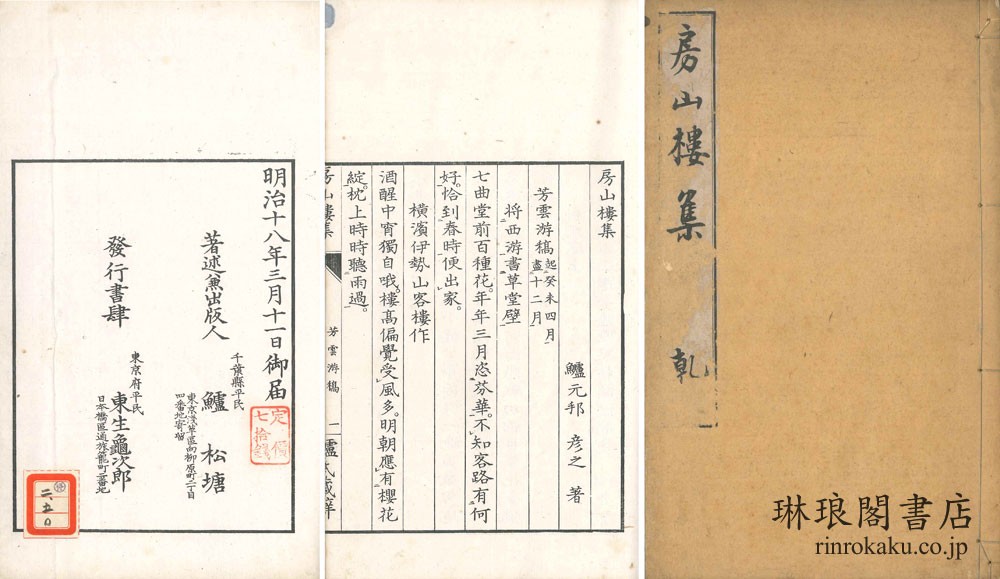 房山樓集 乾
琳琅閣書店
rinrokaku.co.jp
房山樓集
鱸元邦 彦之 著
芳雲游稿 起癸未四月 盡十二月
將西游書草堂壁
七曲堂前百種花。年年三月恣芬華。不知客路有何
好。恰到春時便出家。
橫濱伊勢山客樓作
酒醒中宵獨自哦。樓高偏覺受風多。明朝應有櫻花
綻。枕上時時聽雨過。
房山樓集
芳雲游稿
一
明治十八年三月十一日御届
定價
七拾錢
著述兼出版人
千葉縣平民
鱸 松塘
東京淺草區向柳原町二丁目
四番地寄留
發行書肆
東京府平民
東生龜次郎
日本橋區通旅籠町二番地
二、五〇